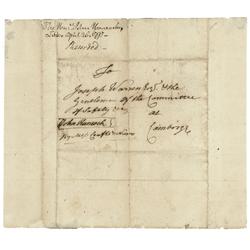 The Honl John Hancock
Letter April 24. 1775
Recorded
To
Joseph Warren Esqr. & the
Gentlemen of the Committee
of Safety
at
John Hancock
Cambridge